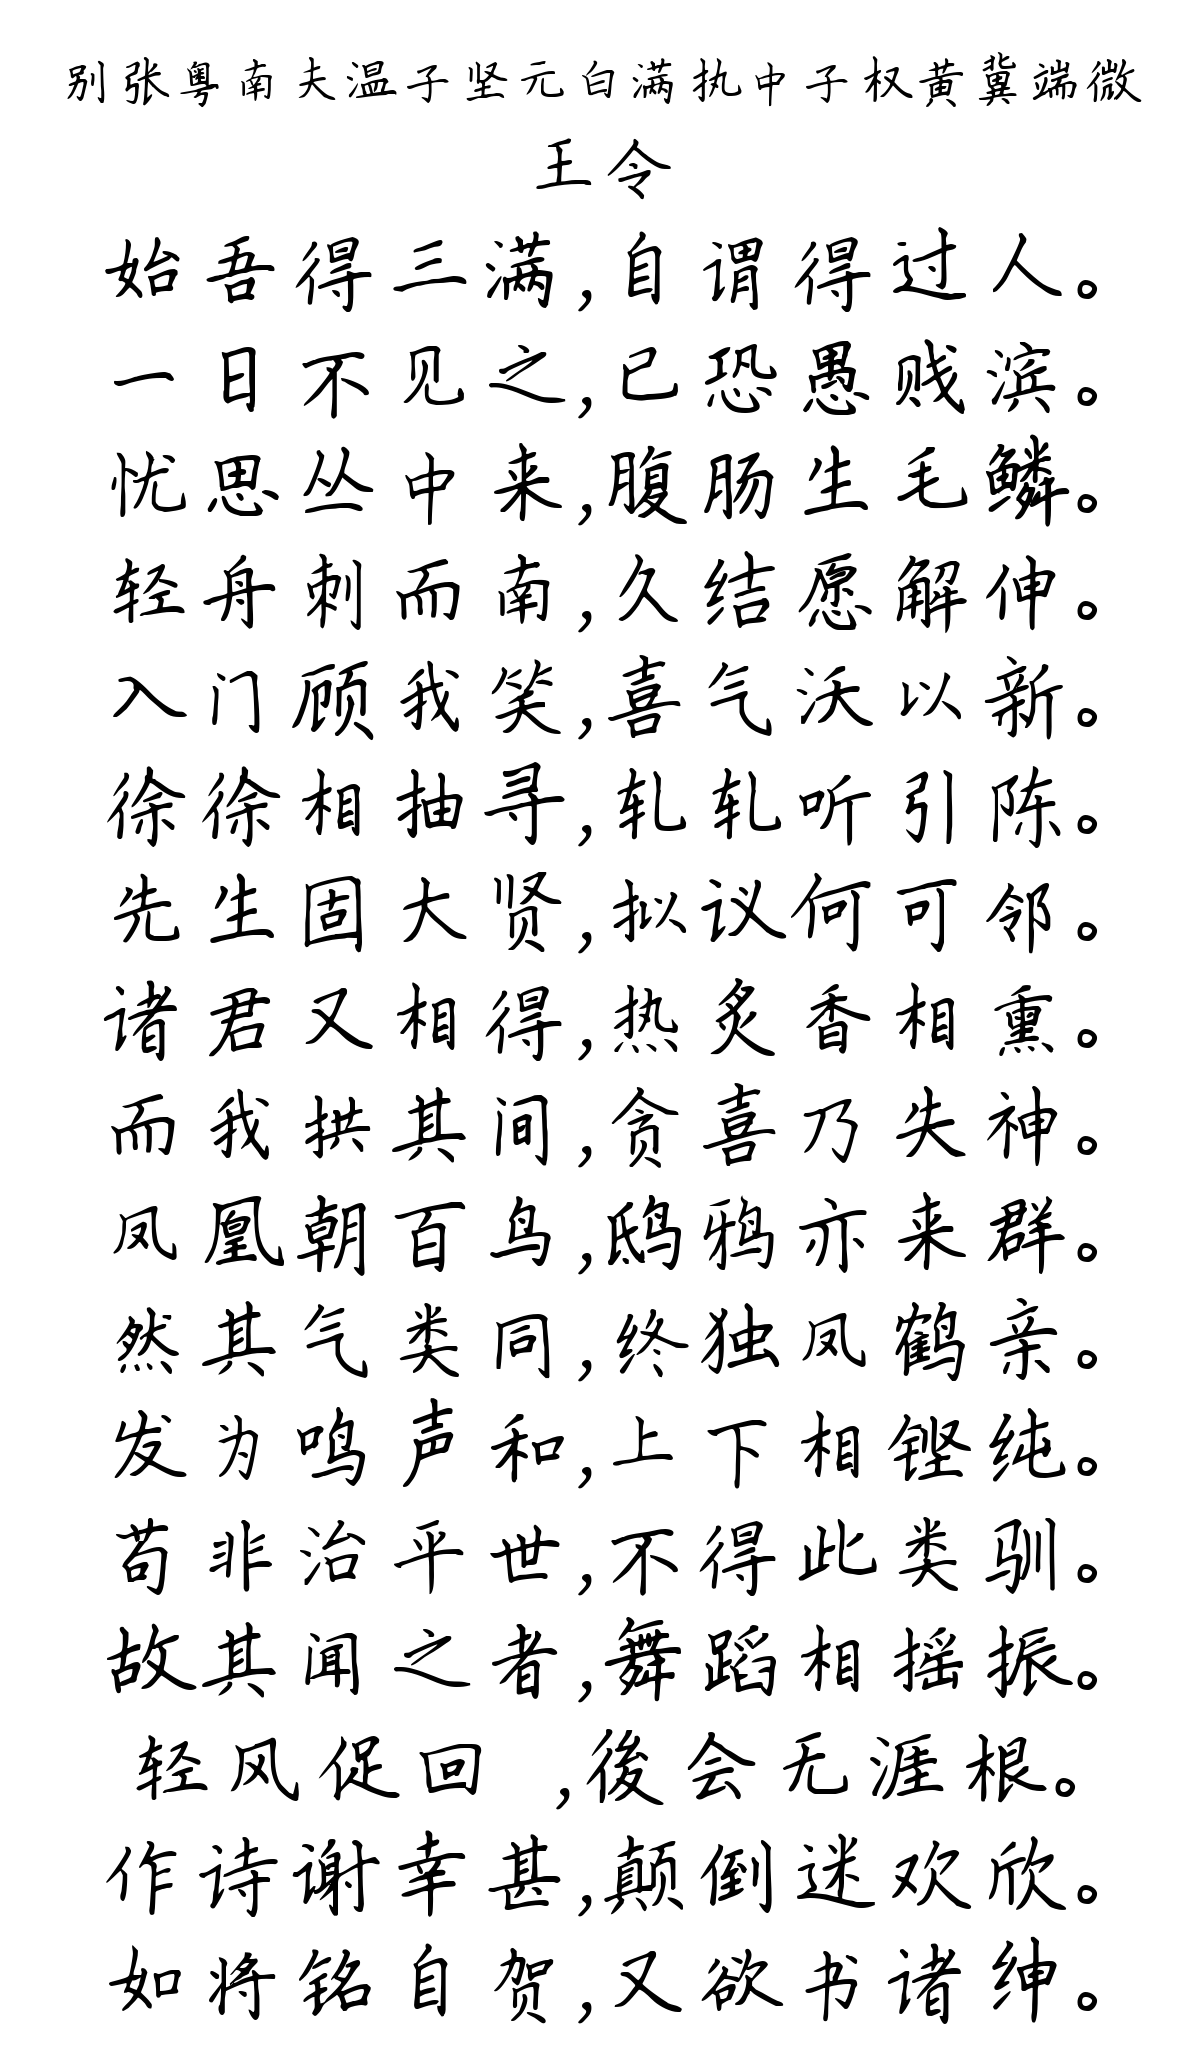 别张粤南夫温子坚元白满执中子权黄冀端微
王令
始吾得三满,自谓得过人。
一日不见之,已恐愚贱滨。
忧思丛中来,腹肠生毛鳞。
轻舟刺而南,久结愿解伸。
入门顾我笑,喜气沃以新。
徐徐相抽寻,轧轧听引陈。
先生固大贤,拟议何可邻。
诸君又相得,热炙香相熏。
而我拱其间,贪喜乃失神。
凤凰朝百鸟,鸱鸦亦来群。
然其气类同,终独凤鹤亲。
发为鸣声和,上下相铿纯。
苟非治平世,不得此类驯。
故其闻之者,舞蹈相摇振。
轻风促回 ,後会无涯根。
作诗谢幸甚,颠倒迷欢欣。
如将铭自贺,又欲书诸绅。